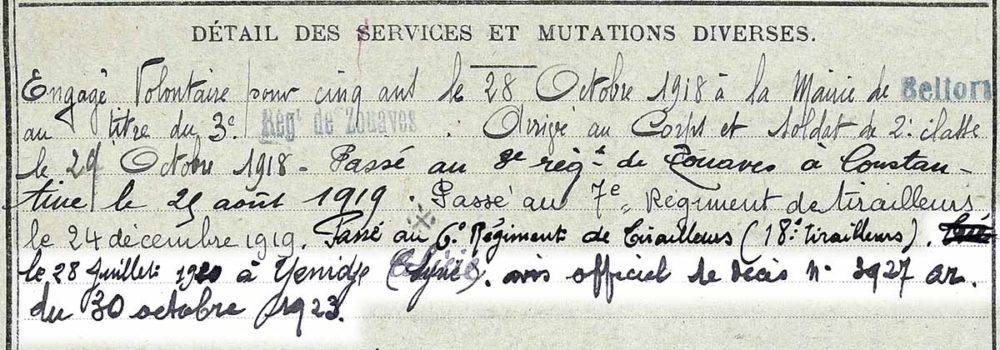 DÉTAIL DES SERVICES ET MUTATIONS DIVERSES.
Engagé Volontaire pour cinq ans le 28 Octobre 1918 à la Mairie de Belfort
au titre du 3e Régt de Zouaves. Arrivé au Corps et soldat de 2e classe
le 29 Octobre 1918 - Passé au 8e régt de Zouaves à Constan-
tine le 25 août 1919. Passé au 7e Régiment de tirailleurs
le 24 décembre 1919. Passé au 6e Régiment de tirailleurs (18e tirailleurs).
le 28 Juillet 1920 à Yenidje. avis officiel de décès n° 3927 AR.
du 30 octobre 1923.